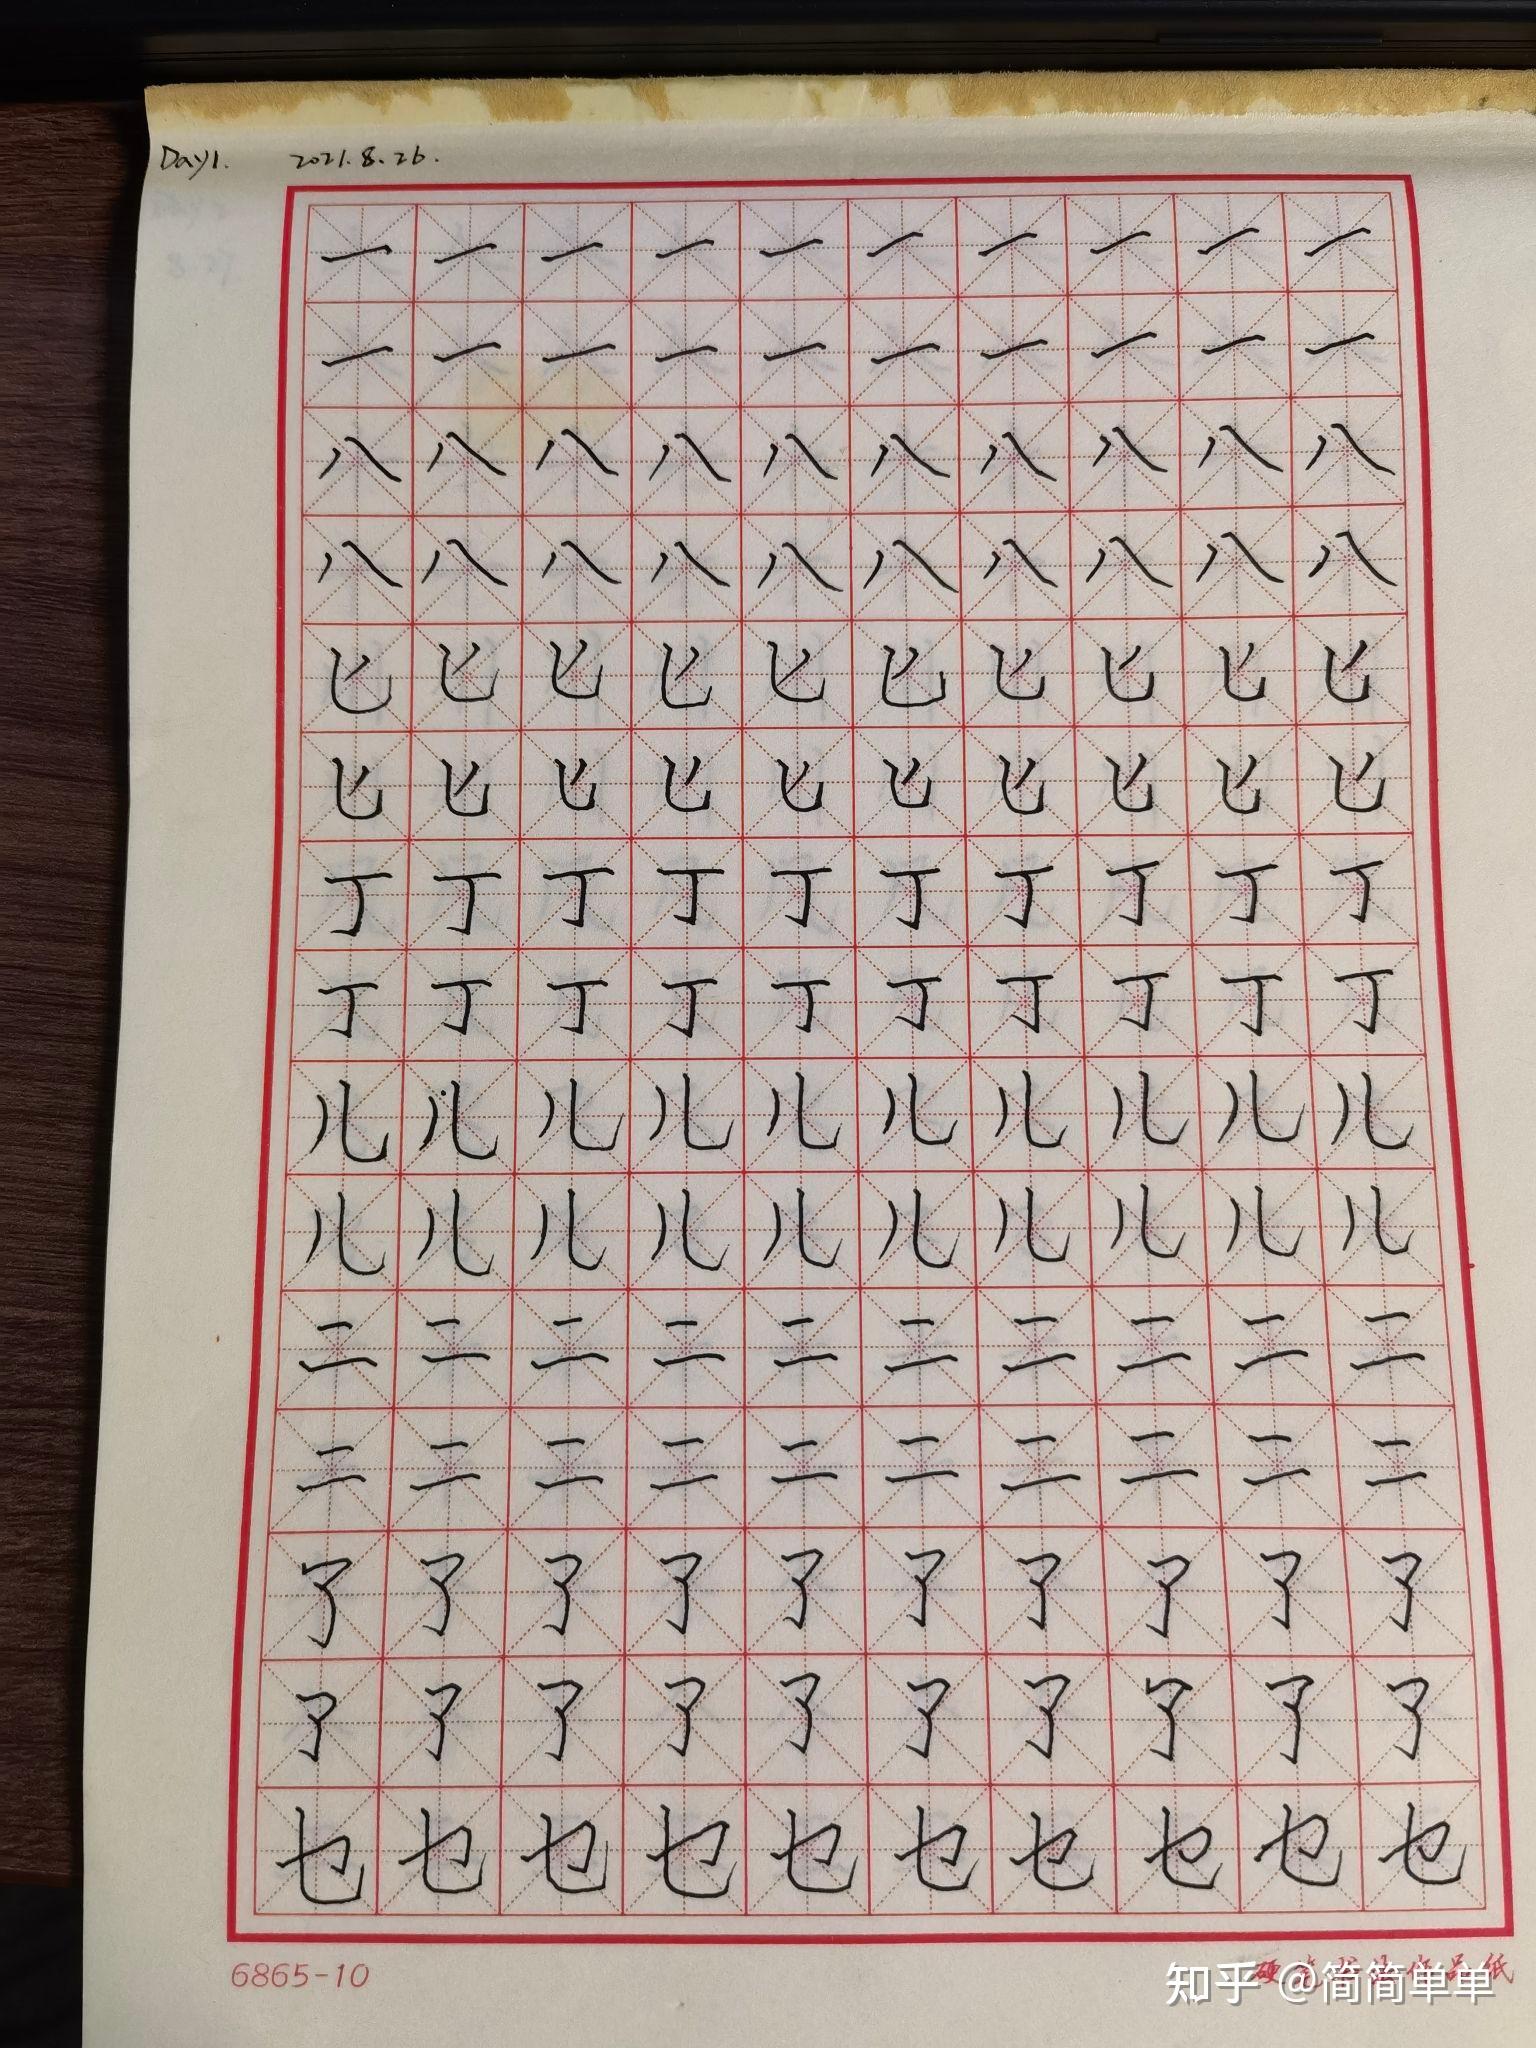 Day1. 2021.8.26.
一一一一一一一一一一
一一一一一一一一一一
八八八八八八八八八八
八八八八八八八八八八
匕匕匕匕匕匕匕匕匕匕
匕匕匕匕匕匕匕匕匕匕
丁丁丁丁丁丁丁丁丁丁
丁丁丁丁丁丁丁丁丁丁
儿儿儿儿儿儿儿儿儿儿
儿儿儿儿儿儿儿儿儿儿
二二二二二二二二二二
二二二二二二二二二二
了了了了了了了了了了
了了了了了了了了了了
乜乜乜乜乜乜乜乜乜乜
6865-10 硬笔书法作品纸
知乎 @简简单单